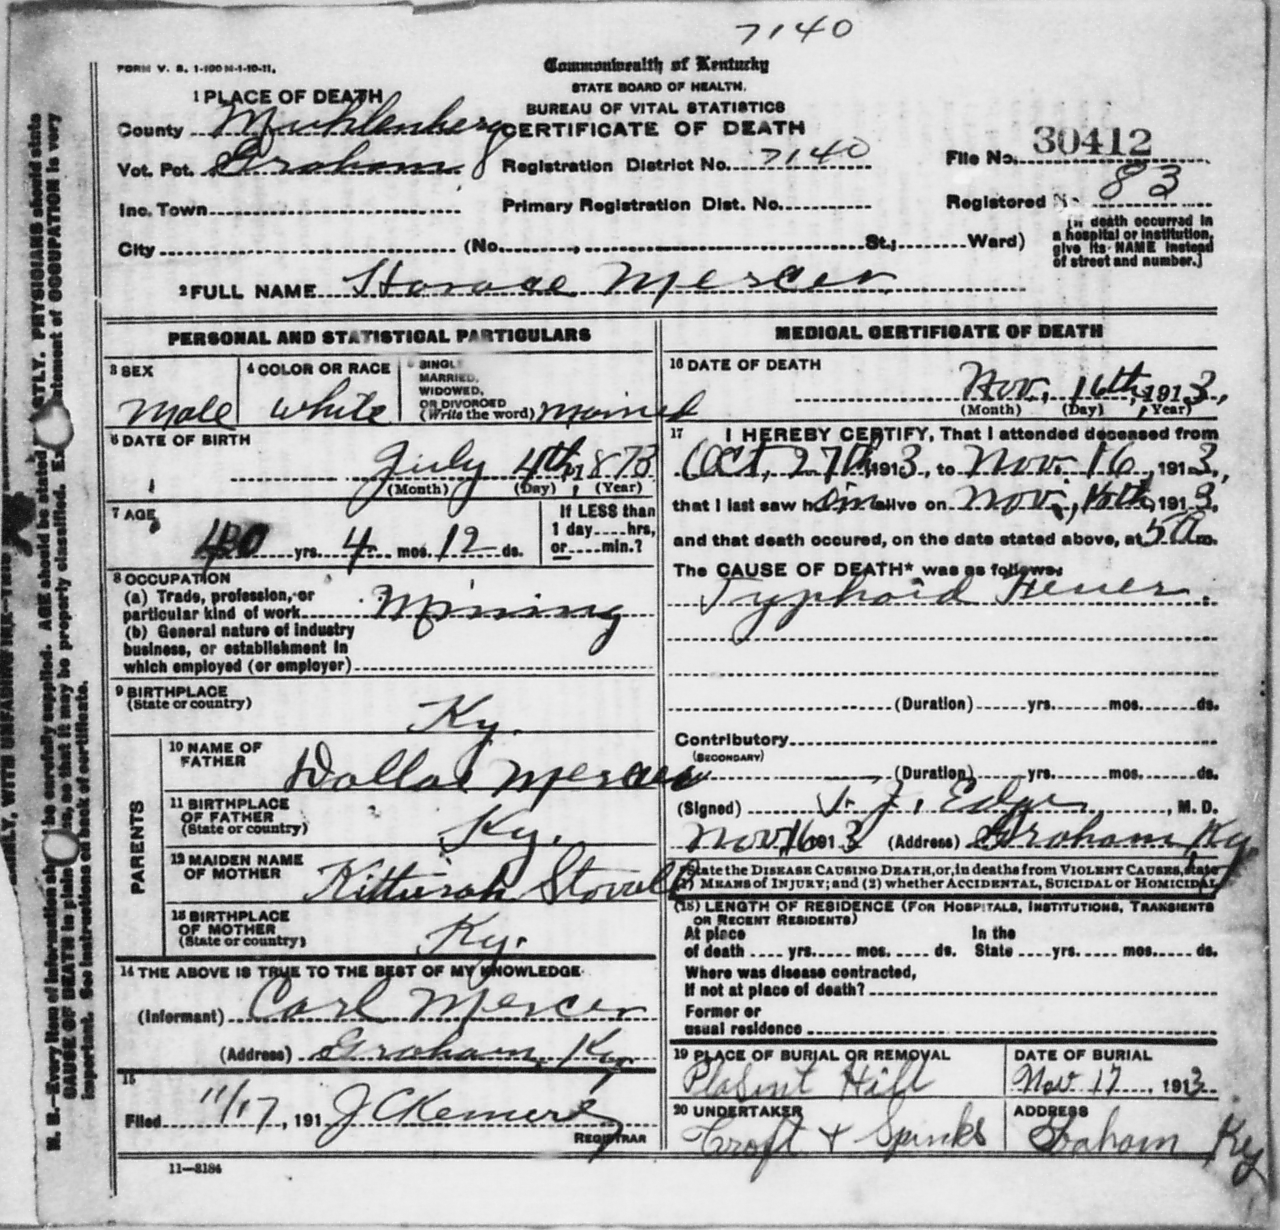 7140
FORM V. S. 1-100 M-1-10-11.
Commonwealth of Kentucky
STATE BOARD OF HEALTH.
BUREAU OF VITAL STATISTICS
CERTIFICATE OF DEATH
1 PLACE OF DEATH
County Muhlenberg
Vot. Pct. Graham
Registration District No. 7140
File No. 30412
Inc. Town
Primary Registration Dist. No.
Registered No. 83
City (No. , St.; Ward)
[If death occurred in
a hospital or institution,
give its NAME instead
of street and number.]
2 FULL NAME Horace Mercer
PERSONAL AND STATISTICAL PARTICULARS
3 SEX
Male
4 COLOR OR RACE
white
5 SINGLE
MARRIED,
WIDOWED,
OR DIVORCED
(Write the word) Married
6 DATE OF BIRTH
July 4th, 1873
(Month) (Day) (Year)
7 AGE
40 yrs. 4 mos. 12 ds.
If LESS than
1 day....hrs,
or....min.?
8 OCCUPATION
(a) Trade, profession, or
particular kind of work Mining
(b) General nature of industry
business, or establishment in
which employed (or employer)
9 BIRTHPLACE
(State or country)
Ky.
PARENTS
10 NAME OF
FATHER
Dallas Mercer
11 BIRTHPLACE
OF FATHER
(State or country)
Ky.
12 MAIDEN NAME
OF MOTHER
Kitturah Stovall
13 BIRTHPLACE
OF MOTHER
(State or country)
Ky.
14 THE ABOVE IS TRUE TO THE BEST OF MY KNOWLEDGE
(Informant) Carl Mercer
(Address) Graham, Ky.
15
Filed 11/17, 191 J C
REGISTRAR
11-3184
MEDICAL CERTIFICATE OF DEATH
16 DATE OF DEATH
Nov. 16th, 1913,
(Month) (Day) (Year)
17 I HEREBY CERTIFY, That I attended deceased from
Oct. 27th, 1913, to Nov. 16, 1913,
that I last saw him alive on Nov., 16th, 1913,
and that death occured, on the date stated above, at 5 a m.
The CAUSE OF DEATH* was as follows:
Typhoid Fever.
(Duration) yrs. mos. ds.
Contributory
(SECONDARY)
(Duration) yrs. mos. ds.
(Signed) J. Edge, M. D.
Nov 16 1913 (Address) Graham, Ky
State the DISEASE CAUSING DEATH, or, in deaths from VIOLENT CAUSES, state
(1) MEANS OF INJURY; and (2) whether ACCIDENTAL, SUICIDAL or HOMICIDAL
(18) LENGTH OF RESIDENCE (FOR HOSPITALS, INSTITUTIONS, TRANSIENTS
OR RECENT RESIDENTS)
At place In the
of death .... yrs. .... mos. .... ds. State .... yrs. .... mos. .... ds.
Where was disease contracted,
If not at place of death?
Former or
usual residence
19 PLACE OF BURIAL OR REMOVAL
Plasent Hill
DATE OF BURIAL
Nov 17, 1913
20 UNDERTAKER
Croft + Spinks
ADDRESS
Graham Ky
N. B.—Every item of information should be carefully supplied. AGE should be stated EXACTLY. PHYSICIANS should state
CAUSE OF DEATH in plain terms, so that it may be properly classified. Exact statement of OCCUPATION is very
important. See instructions on back of certificate.